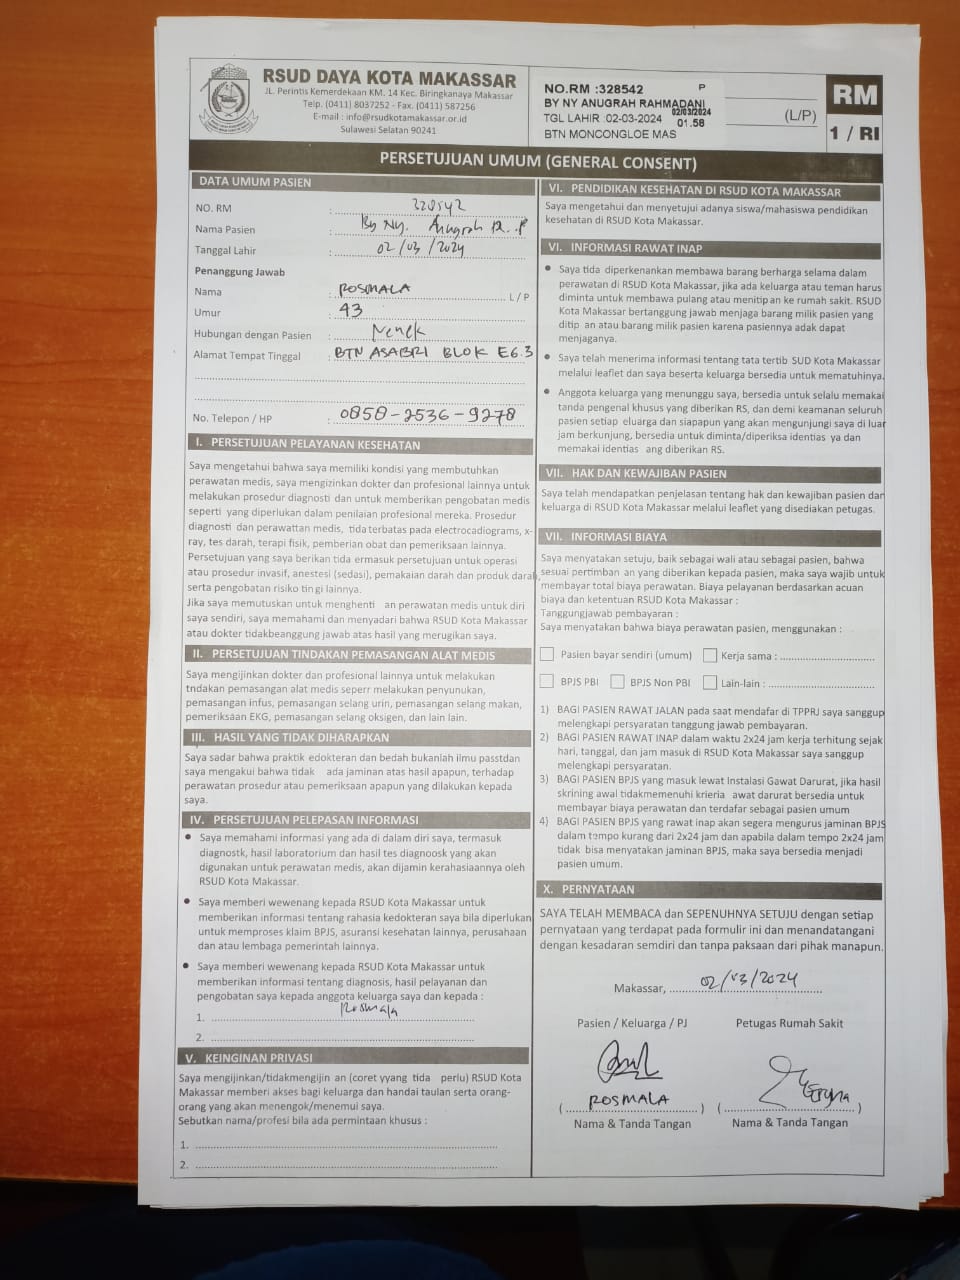 RSUD DAYA KOTA MAKASSAR
JL. Perintis Kemerdekaan KM. 14 Kec. Biringkanaya Makassar
Telp. (0411) 8037252 - Fax. (0411) 587256
E-mail : info@rsudkotamakassar.or.id
Sulawesi Selatan 90241
NO.RM :328542 P
BY NY ANUGRAH RAHMADANI
02/03/2024
TGL LAHIR :02-03-2024 01.58
BTN MONCONGLOE MAS
(L/P)
RM
1 / RI
PERSETUJUAN UMUM (GENERAL CONSENT)
DATA UMUM PASIEN
NO. RM : 328542
Nama Pasien : By Ny. Anugrah R. P
Tanggal Lahir : 02/03/2024
Penanggung Jawab
Nama : ROSMALA L / P
Umur : 43
Hubungan dengan Pasien : Nenek
Alamat Tempat Tinggal : BTN ASABRI BLOK E6.3
No. Telepon / HP : 0858-2536-9278
I. PERSETUJUAN PELAYANAN KESEHATAN
Saya mengetahui bahwa saya memiliki kondisi yang membutuhkan
perawatan medis, saya mengizinkan dokter dan profesional lainnya untuk
melakukan prosedur diagnosti dan untuk memberikan pengobatan medis
seperti yang diperlukan dalam penilaian profesional mereka. Prosedur
diagnosti dan perawattan medis, tida terbatas pada electrocadiograms, x-
ray, tes darah, terapi fisik, pemberian obat dan pemeriksaan lainnya.
Persetujuan yang saya berikan tida ermasuk persetujuan untuk operasi
atau prosedur invasif, anestesi (sedasi), pemakaian darah dan produk darah,
serta pengobatan risiko tin gi lainnya.
Jika saya memutuskan untuk menghenti an perawatan medis untuk diri
saya sendiri, saya memahami dan menyadari bahwa RSUD Kota Makassar
atau dokter tidakbeanggung jawab atas hasil yang merugikan saya.
II. PERSETUJUAN TINDAKAN PEMASANGAN ALAT MEDIS
Saya mengijinkan dokter dan profesional lainnya untuk melakukan
tndakan pemasangan alat medis seperr melakukan penyunukan,
pemasangan infus, pemasangan selang urin, pemasangan selang makan,
pemeriksaan EKG, pemasangan selang oksigen, dan lain lain.
III. HASIL YANG TIDAK DIHARAPKAN
Saya sadar bahwa praktik edokteran dan bedah bukanlah ilmu passtdan
saya mengakui bahwa tidak ada jaminan atas hasil apapun, terhadap
perawatan prosedur atau pemeriksaan apapun yang dilakukan kepada
saya.
IV. PERSETUJUAN PELEPASAN INFORMASI
• Saya memahami informasi yang ada di dalam diri saya, termasuk
diagnostk, hasil laboratorium dan hasil tes diagnoosk yang akan
digunakan untuk perawatan medis, akan dijamin kerahasiaannya oleh
RSUD Kota Makassar.
• Saya memberi wewenang kepada RSUD Kota Makassar untuk
memberikan informasi tentang rahasia kedokteran saya bila diperlukan
untuk memproses klaim BPJS, asuransi kesehatan lainnya, perusahaan
dan atau lembaga pemerintah lainnya.
• Saya memberi wewenang kepada RSUD Kota Makassar untuk
memberikan informasi tentang diagnosis, hasil pelayanan dan
pengobatan saya kepada anggota keluarga saya dan kepada :
1. Rosmala
2.
V. KEINGINAN PRIVASI
Saya mengijinkan/tidakmengijin an (coret yyang tida perlu) RSUD Kota
Makassar memberi akses bagi keluarga dan handai taulan serta orang-
orang yang akan menengok/menemui saya.
Sebutkan nama/profesi bila ada permintaan khusus :
1.
2.
VI. PENDIDIKAN KESEHATAN DI RSUD KOTA MAKASSAR
Saya mengetahui dan menyetujui adanya siswa/mahasiswa pendidikan
kesehatan di RSUD Kota Makassar.
VI. INFORMASI RAWAT INAP
• Saya tida diperkenankan membawa barang berharga selama dalam
perawatan di RSUD Kota Makassar, jika ada keluarga atau teman harus
diminta untuk membawa pulang atau menitip an ke rumah sakit. RSUD
Kota Makassar bertanggung jawab menjaga barang milik pasien yang
ditip an atau barang milik pasien karena pasiennya adak dapat
menjaganya.
• Saya telah menerima informasi tentang tata tertib SUD Kota Makassar
melalui leaflet dan saya beserta keluarga bersedia untuk mematuhinya.
• Anggota keluarga yang menunggu saya, bersedia untuk selalu memakai
tanda pengenal khusus yang diberikan RS, dan demi keamanan seluruh
pasien setiap eluarga dan siapapun yang akan mengunjungi saya di luar
jam berkunjung, bersedia untuk diminta/diperiksa identias ya dan
memakai identias ang diberikan RS.
VII. HAK DAN KEWAJIBAN PASIEN
Saya telah mendapatkan penjelasan tentang hak dan kewajiban pasien dan
keluarga di RSUD Kota Makassar melalui leaflet yang disediakan petugas.
VII. INFORMASI BIAYA
Saya menyatakan setuju, baik sebagai wali atau sebagai pasien, bahwa
sesuai pertimban an yang diberikan kepada pasien, maka saya wajib untuk
membayar total biaya perawatan. Biaya pelayanan berdasarkan acuan
biaya dan ketentuan RSUD Kota Makassar :
Tanggungjawab pembayaran :
Saya menyatakan bahwa biaya perawatan pasien, menggunakan :
Pasien bayar sendiri (umum) Kerja sama :
BPJS PBI BPJS Non PBI Lain-lain :
1) BAGI PASIEN RAWAT JALAN pada saat mendafar di TPPRJ saya sanggup
melengkapi persyaratan tanggung jawab pembayaran.
2) BAGI PASIEN RAWAT INAP dalam waktu 2x24 jam kerja terhitung sejak
hari, tanggal, dan jam masuk di RSUD Kota Makassar saya sanggup
melengkapi persyratan.
3) BAGI PASIEN BPJS yang masuk lewat Instalasi Gawat Darurat, jika hasil
skrining awal tidakmemenuhi krieria awat darurat bersedia untuk
membayar biaya perawatan dan terdafar sebagai pasien umum
4) BAGI PASIEN BPJS yang rawat inap akan segera mengurus jaminan BPJS
dalam tempo kurang dari 2x24 jam dan apabila dalam tempo 2x24 jam
tidak bisa menyatakan jaminan BPJS, maka saya bersedia menjadi
pasien umum.
X. PERNYATAAN
SAYA TELAH MEMBACA dan SEPENUHNYA SETUJU dengan setiap
pernyataan yang terdapat pada formulir ini dan menandatangani
dengan kesadaran semdiri dan tanpa paksaan dari pihak manapun.
Makassar, 02/03/2024
Pasien / Keluarga / PJ Petugas Rumah Sakit
( ROSMALA ) ( )
Nama & Tanda Tangan Nama & Tanda Tangan